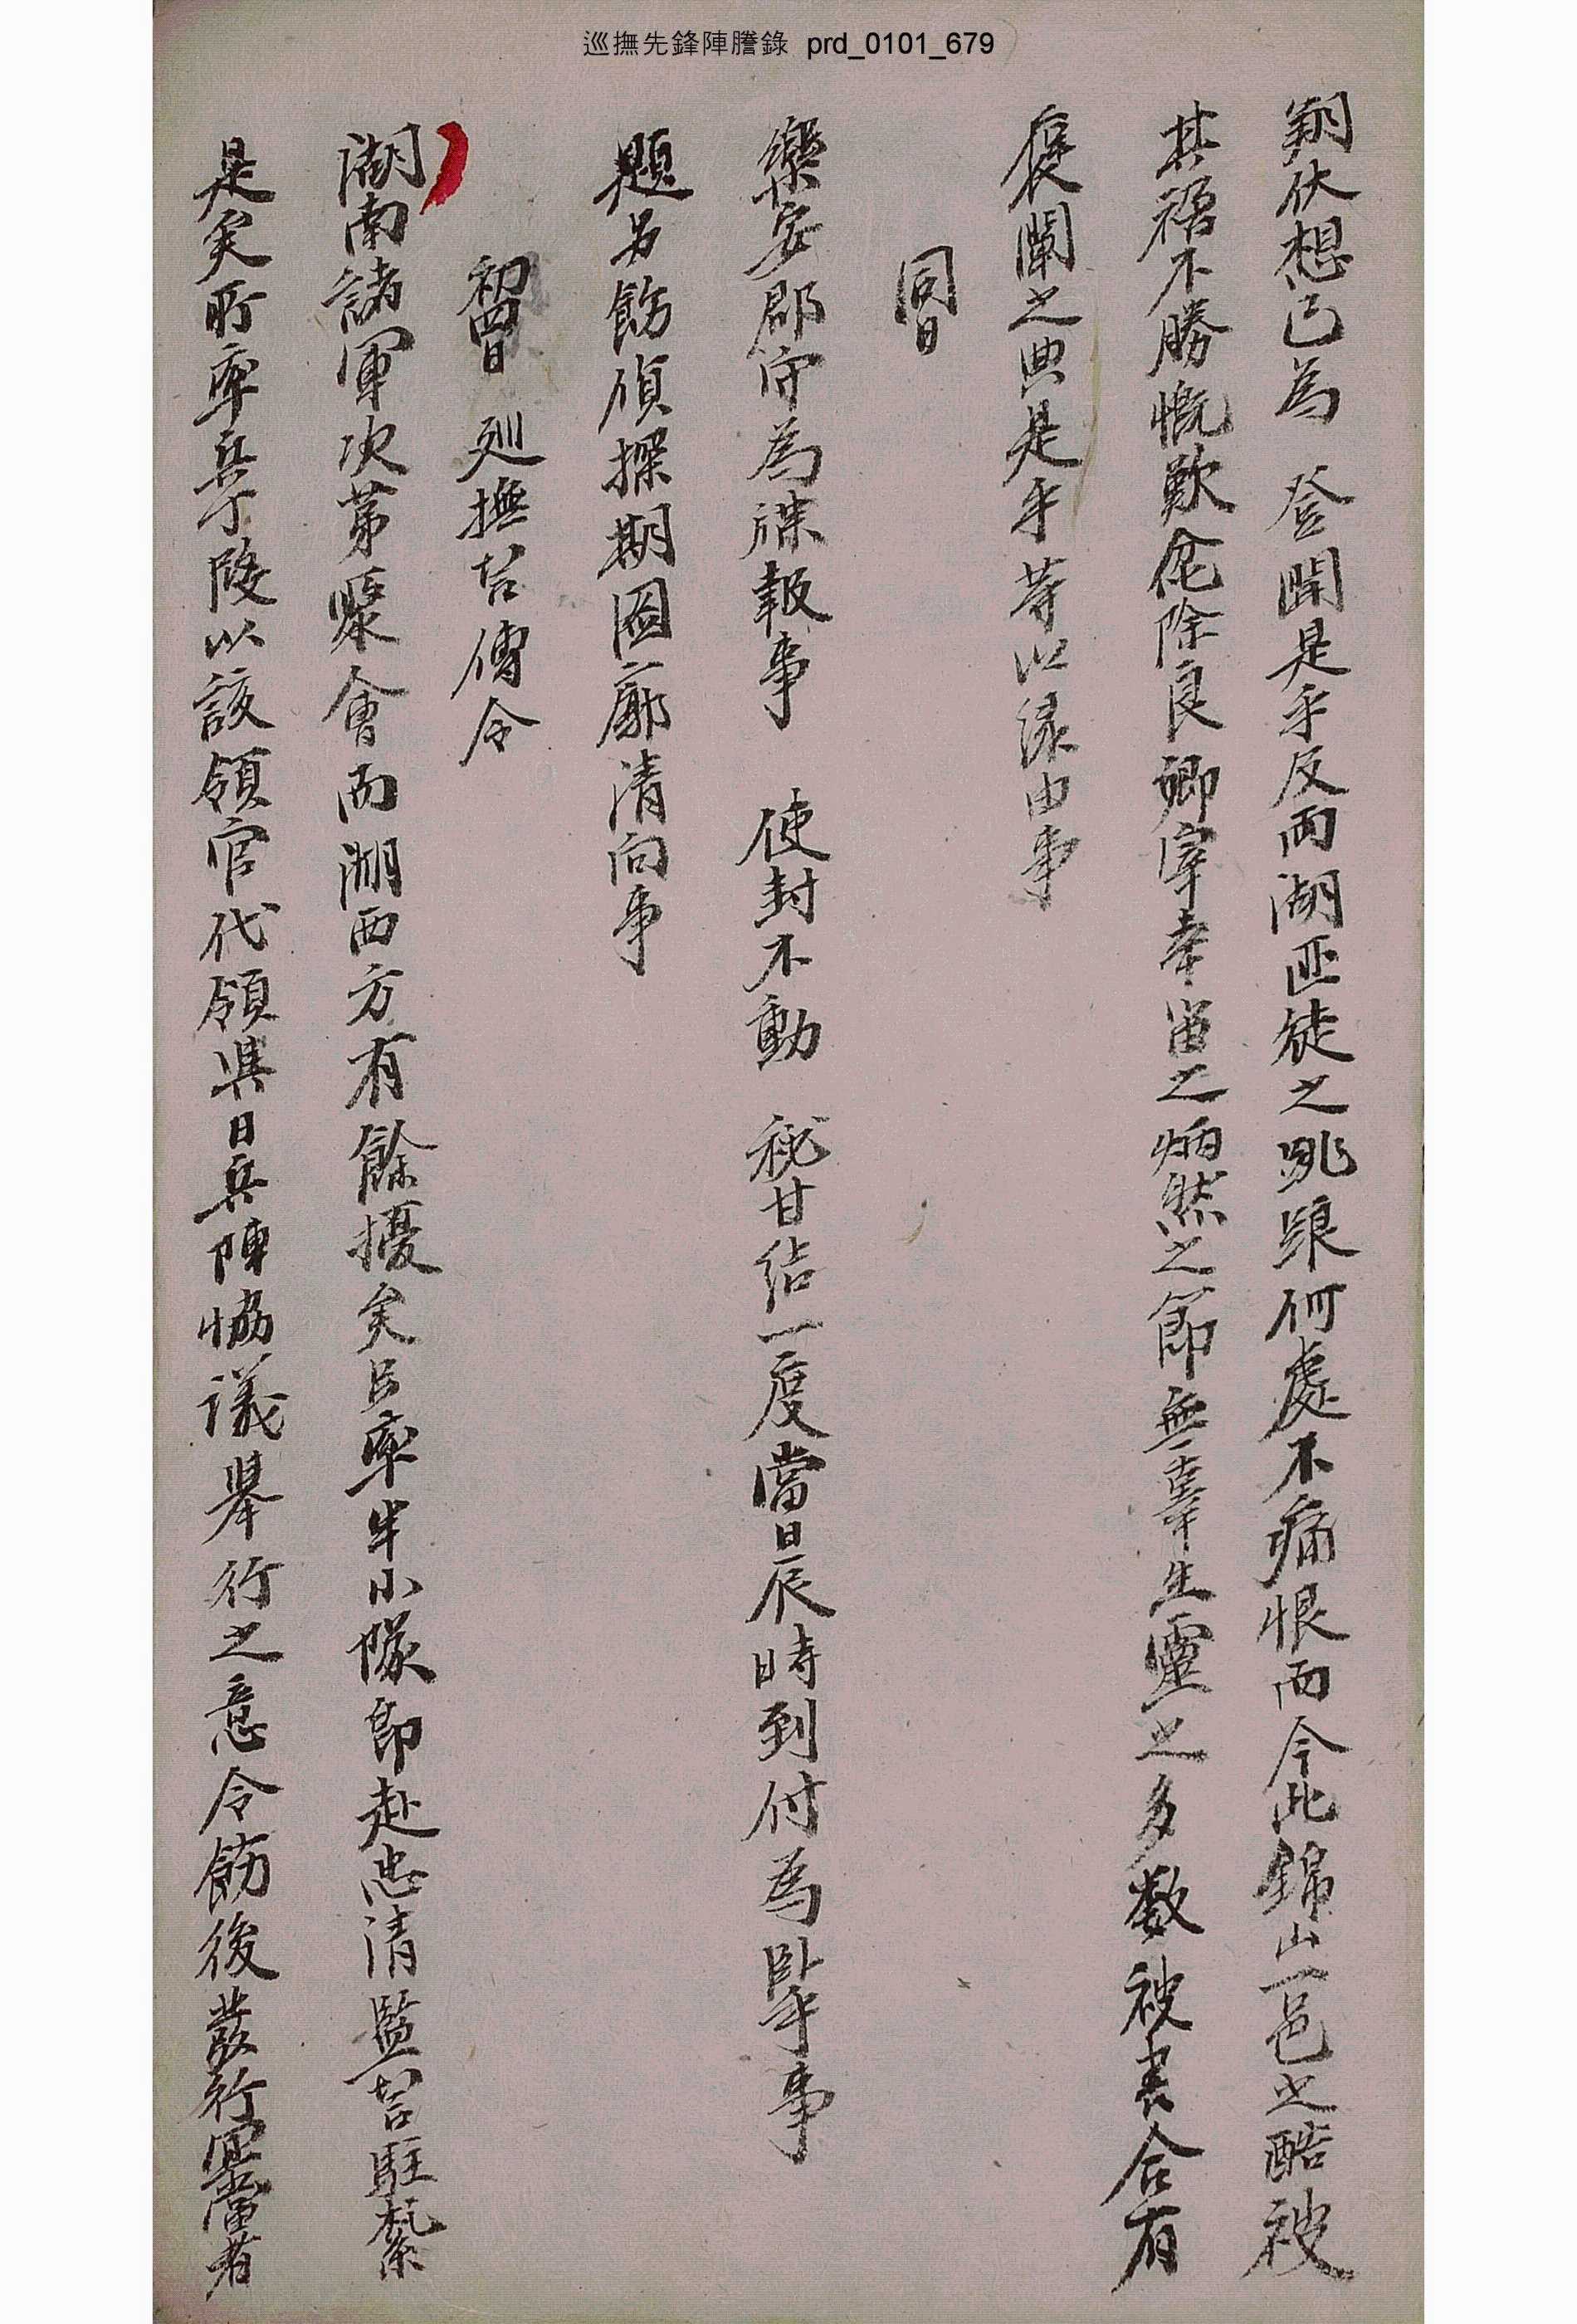 巡撫先鋒陣謄錄 prd_0101_679
翔伏想已為 登聞是乎反両湖匪徒之跳踉何處不痛恨而今此錦山一邑之酷被
其禍不勝慨歎除良卿宰幸留之炳然之節無辜生靈之多数被害合有
褒闡之典是乎等以緣由事
同日
樂安郡守為牒報事 使封不動 秘甘結一度當日辰時到付為臥乎事
題另飭偵探期圖廓清向事
初四日 廵撫営傳令
湖南諸軍次第聚會而湖西方有餘擾矣只率半小隊即赴忠清監営駐紮
是矣所率兵丁段以該領官代領與日兵陣協議舉行之意令飭後發行宜當者